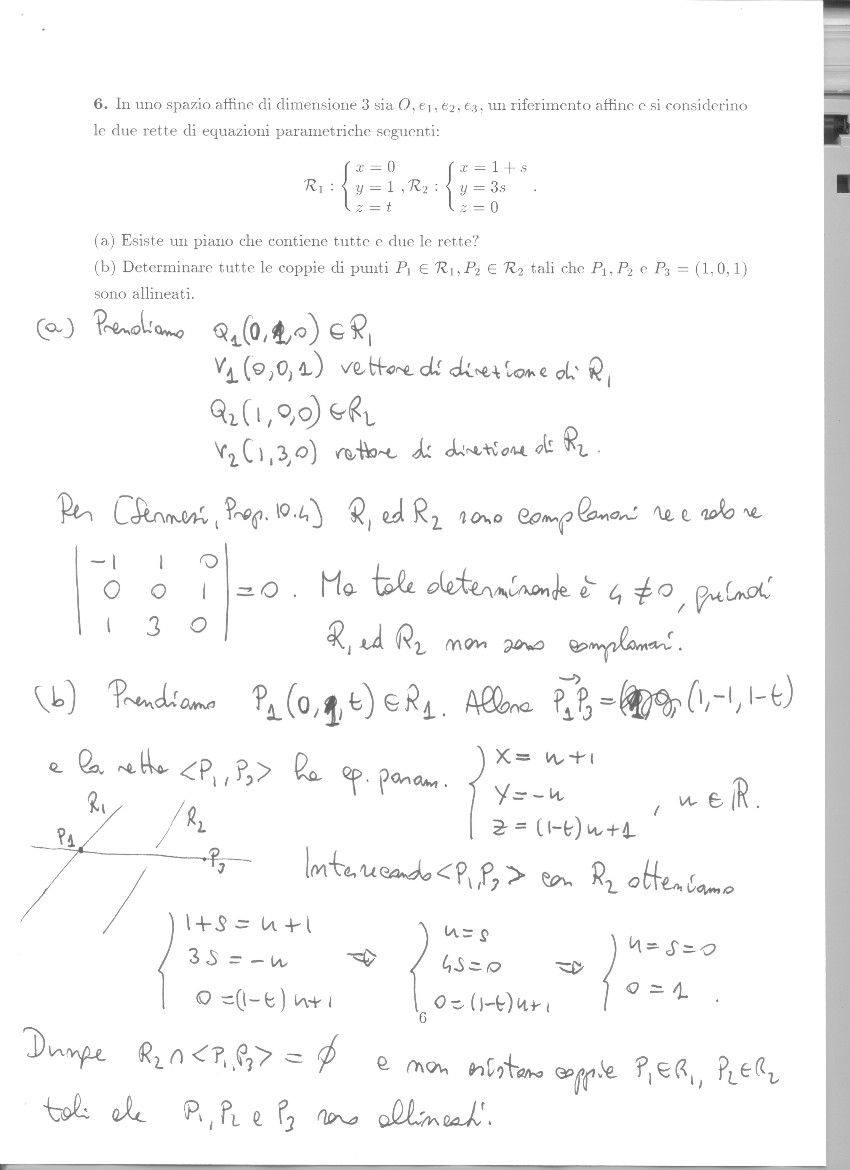 6. In uno spazio affine di dimensione 3 sia O, e₁, e₂, e₃, un riferimento affine e si considerino
le due rette di equazioni parametriche seguenti:
R₁ : { x = 0 , R₂ : { x = 1 + s
y = 1 y = 3s .
z = t z = 0
(a) Esiste un piano che contiene tutte e due le rette?
(b) Determinare tutte le coppie di punti P₁ ∈ R₁, P₂ ∈ R₂ tali che P₁, P₂ e P₃ = (1, 0, 1)
sono allineati.
(a) Prendiamo Q₁(0,1,0) ∈ R₁
V₁(0,0,1) vettore di direzione di R₁
Q₂(1,0,0) ∈ R₂
V₂(1,3,0) vettore di direzione di R₂.
Per [Sernesi, Prop. 10.4] R₁ ed R₂ sono complanari se e solo se
| -1 1 0 |
| 0 0 1 | = 0. Ma tale determinante è 4 ≠ 0, quindi
| 1 3 0 | R₁ ed R₂ non sono complanari.
(b) Prendiamo P₁(0,1,t) ∈ R₁. Allora P₁P₃ = (1,-1,1-t)
e la retta <P₁,P₃> ha eq. param. { x = u+1
y = -u , u ∈ R.
z = (1-t)u+1
R₁ R₂
P₁ P₃
Intersecando <P₁,P₃> con R₂ otteniamo
{ 1+s = u+1 { u=s { u=s=0
3s = -u ⇒ 4s=0 ⇒ 0=1 .
0=(1-t)u+1 0=(1-t)u+1
6
Dunque R₂ ∩ <P₁,P₃> = ∅ e non esistono coppie P₁∈R₁, P₂∈R₂
tali che P₁, P₂ e P₃ sono allineati.